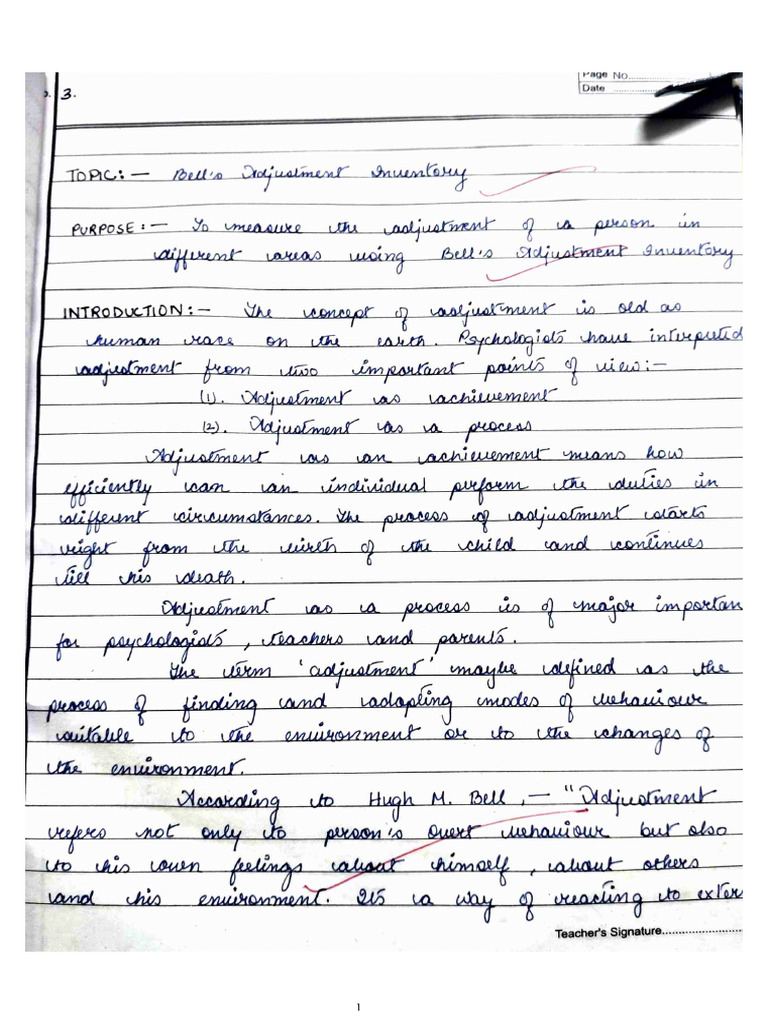 Page No.
Date
3.
TOPIC:- Bell's Adjustment Inventory
PURPOSE:- To measure the adjustment of a person in
different areas using Bell's Adjustment Inventory
INTRODUCTION:- The concept of adjustment is old as
human race on the earth. Psychologists have interputed
adjustment from two important points of view:-
(1). Adjustment as achievement
(2). Adjustment as a process
Adjustment as an achievement means how
efficiently can an individual perform the duties in
different circumstances. The process of adjustment starts
right from the birth of the child and continues
till his death.
Adjustment as a process is of major importan
for psychologists, teachers and parents.
The term 'adjustment' maybe defined as the
process of finding and adapting modes of behaviour
suitable to the environment or to the changes of
the environment.
According to Hugh M. Bell,- "Adjustment
refers not only to person's overt behaviour but also
to his own feelings about himself, about others
and his environment. Its a way of reacting to exter
Teacher's Signature
1